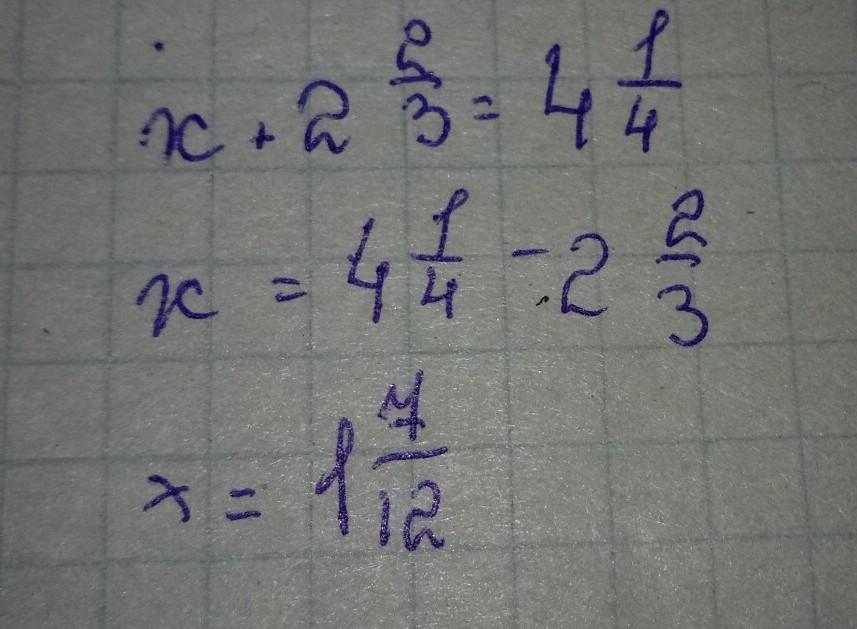 x + 2 2/3 = 4 1/4
x = 4 1/4 - 2 2/3
x = 1 7/12